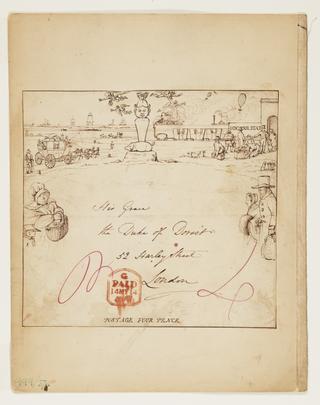 His Grace
the Duke of Dorset
52 Harley Street
London
G
PAID
POSTAGE FOUR PENCE.